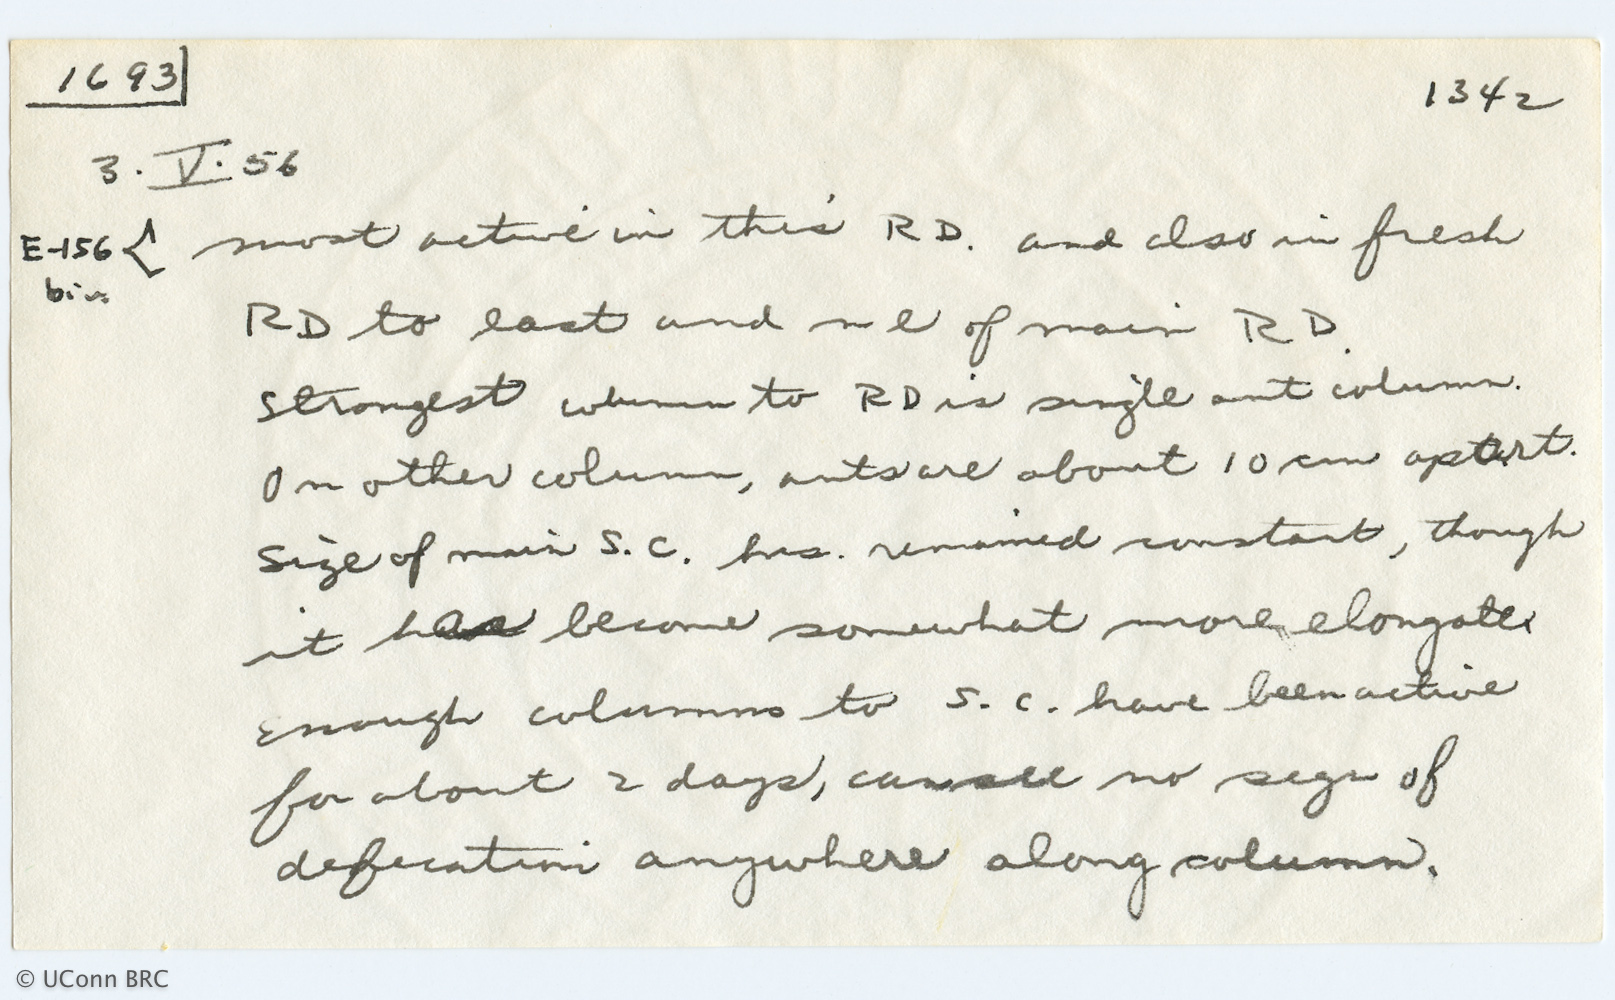 1693
1342
3. V. 56
E-156 biv. most active in this RD. and also in fresh
RD to east and ne of main RD.
Strongest column to RD is single ant column.
On other column, ants are about 10 cm apart.
Size of main S.C. has. remained constant, though
it has become somewhat more elongate.
Enough columns to S.C. have been active
for about 2 days, can see no sign of
defecation anywhere along column.
© UConn BRC